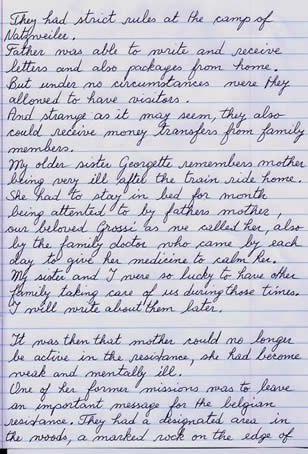 They had strict rules at the camp of
Natzweiler.
Father was able to write and receive
letters and also packages from home.
But under no circumstances were they
allowed to have visitors.
And strange as it may seem, they also
could receive money transfers from family
members.
My older sister Georgette remembers mother
being very ill after the train ride home.
She had to stay in bed for month
being attented to by fathers mother,
our beloved Grossi as we called her, also
by the family doctor who came by each
day to give her medicine to calm her.
My sister and I were so lucky to have other
family taking care of us during those times.
I will write about them later.

It was then that mother could no longer
be active in the resistance, she had become
weak and mentally ill.
One of her former missions was to leave
an important message for the belgian
resistance. They had a designated area in
the woods, a marked rock on the edge of